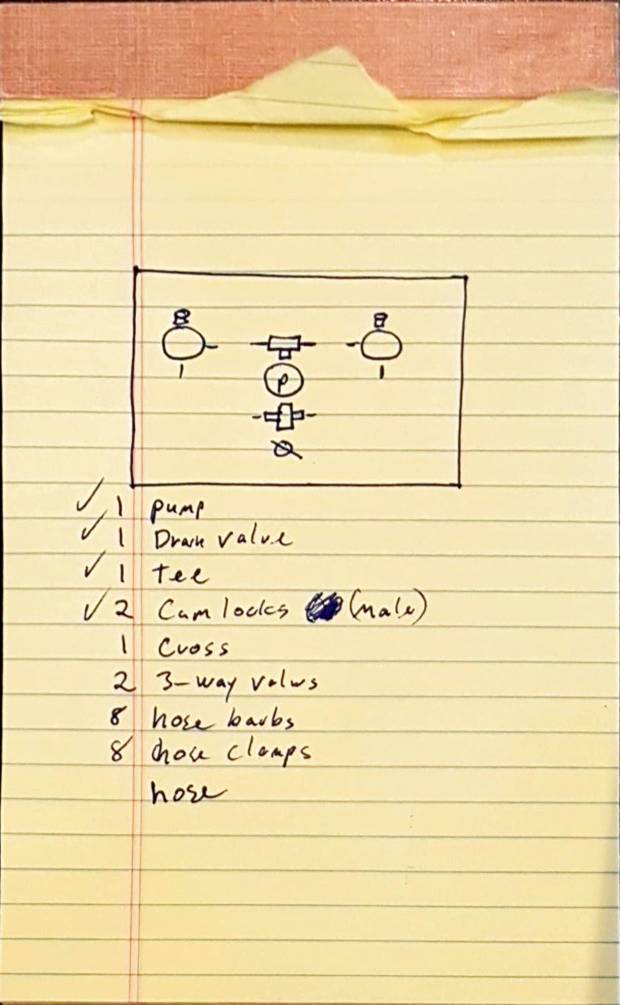 P
✓ 1 pump
✓ 1 Drain valve
✓ 1 tee
✓ 2 Cam locks (male)
1 Cross
2 3-way valves
8 hose barbs
8 hose clamps
hose